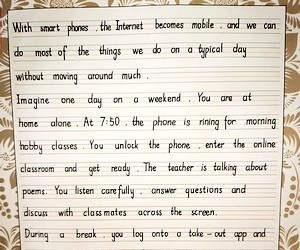 With smart phones , the Internet becomes mobile , and we can
do most of the things we do on a typical day
without moving around much .
Imagine one day on a weekend . You are at
home alone . At 7:50 , the phone is rining for morning
hobby classes . You unlock the phone , enter the online
classroom and get ready . The teacher is talking about
poems. You listen carefully , answer questions and
discuss with classmates across the screen.
During a break , you log onto a take-out app and